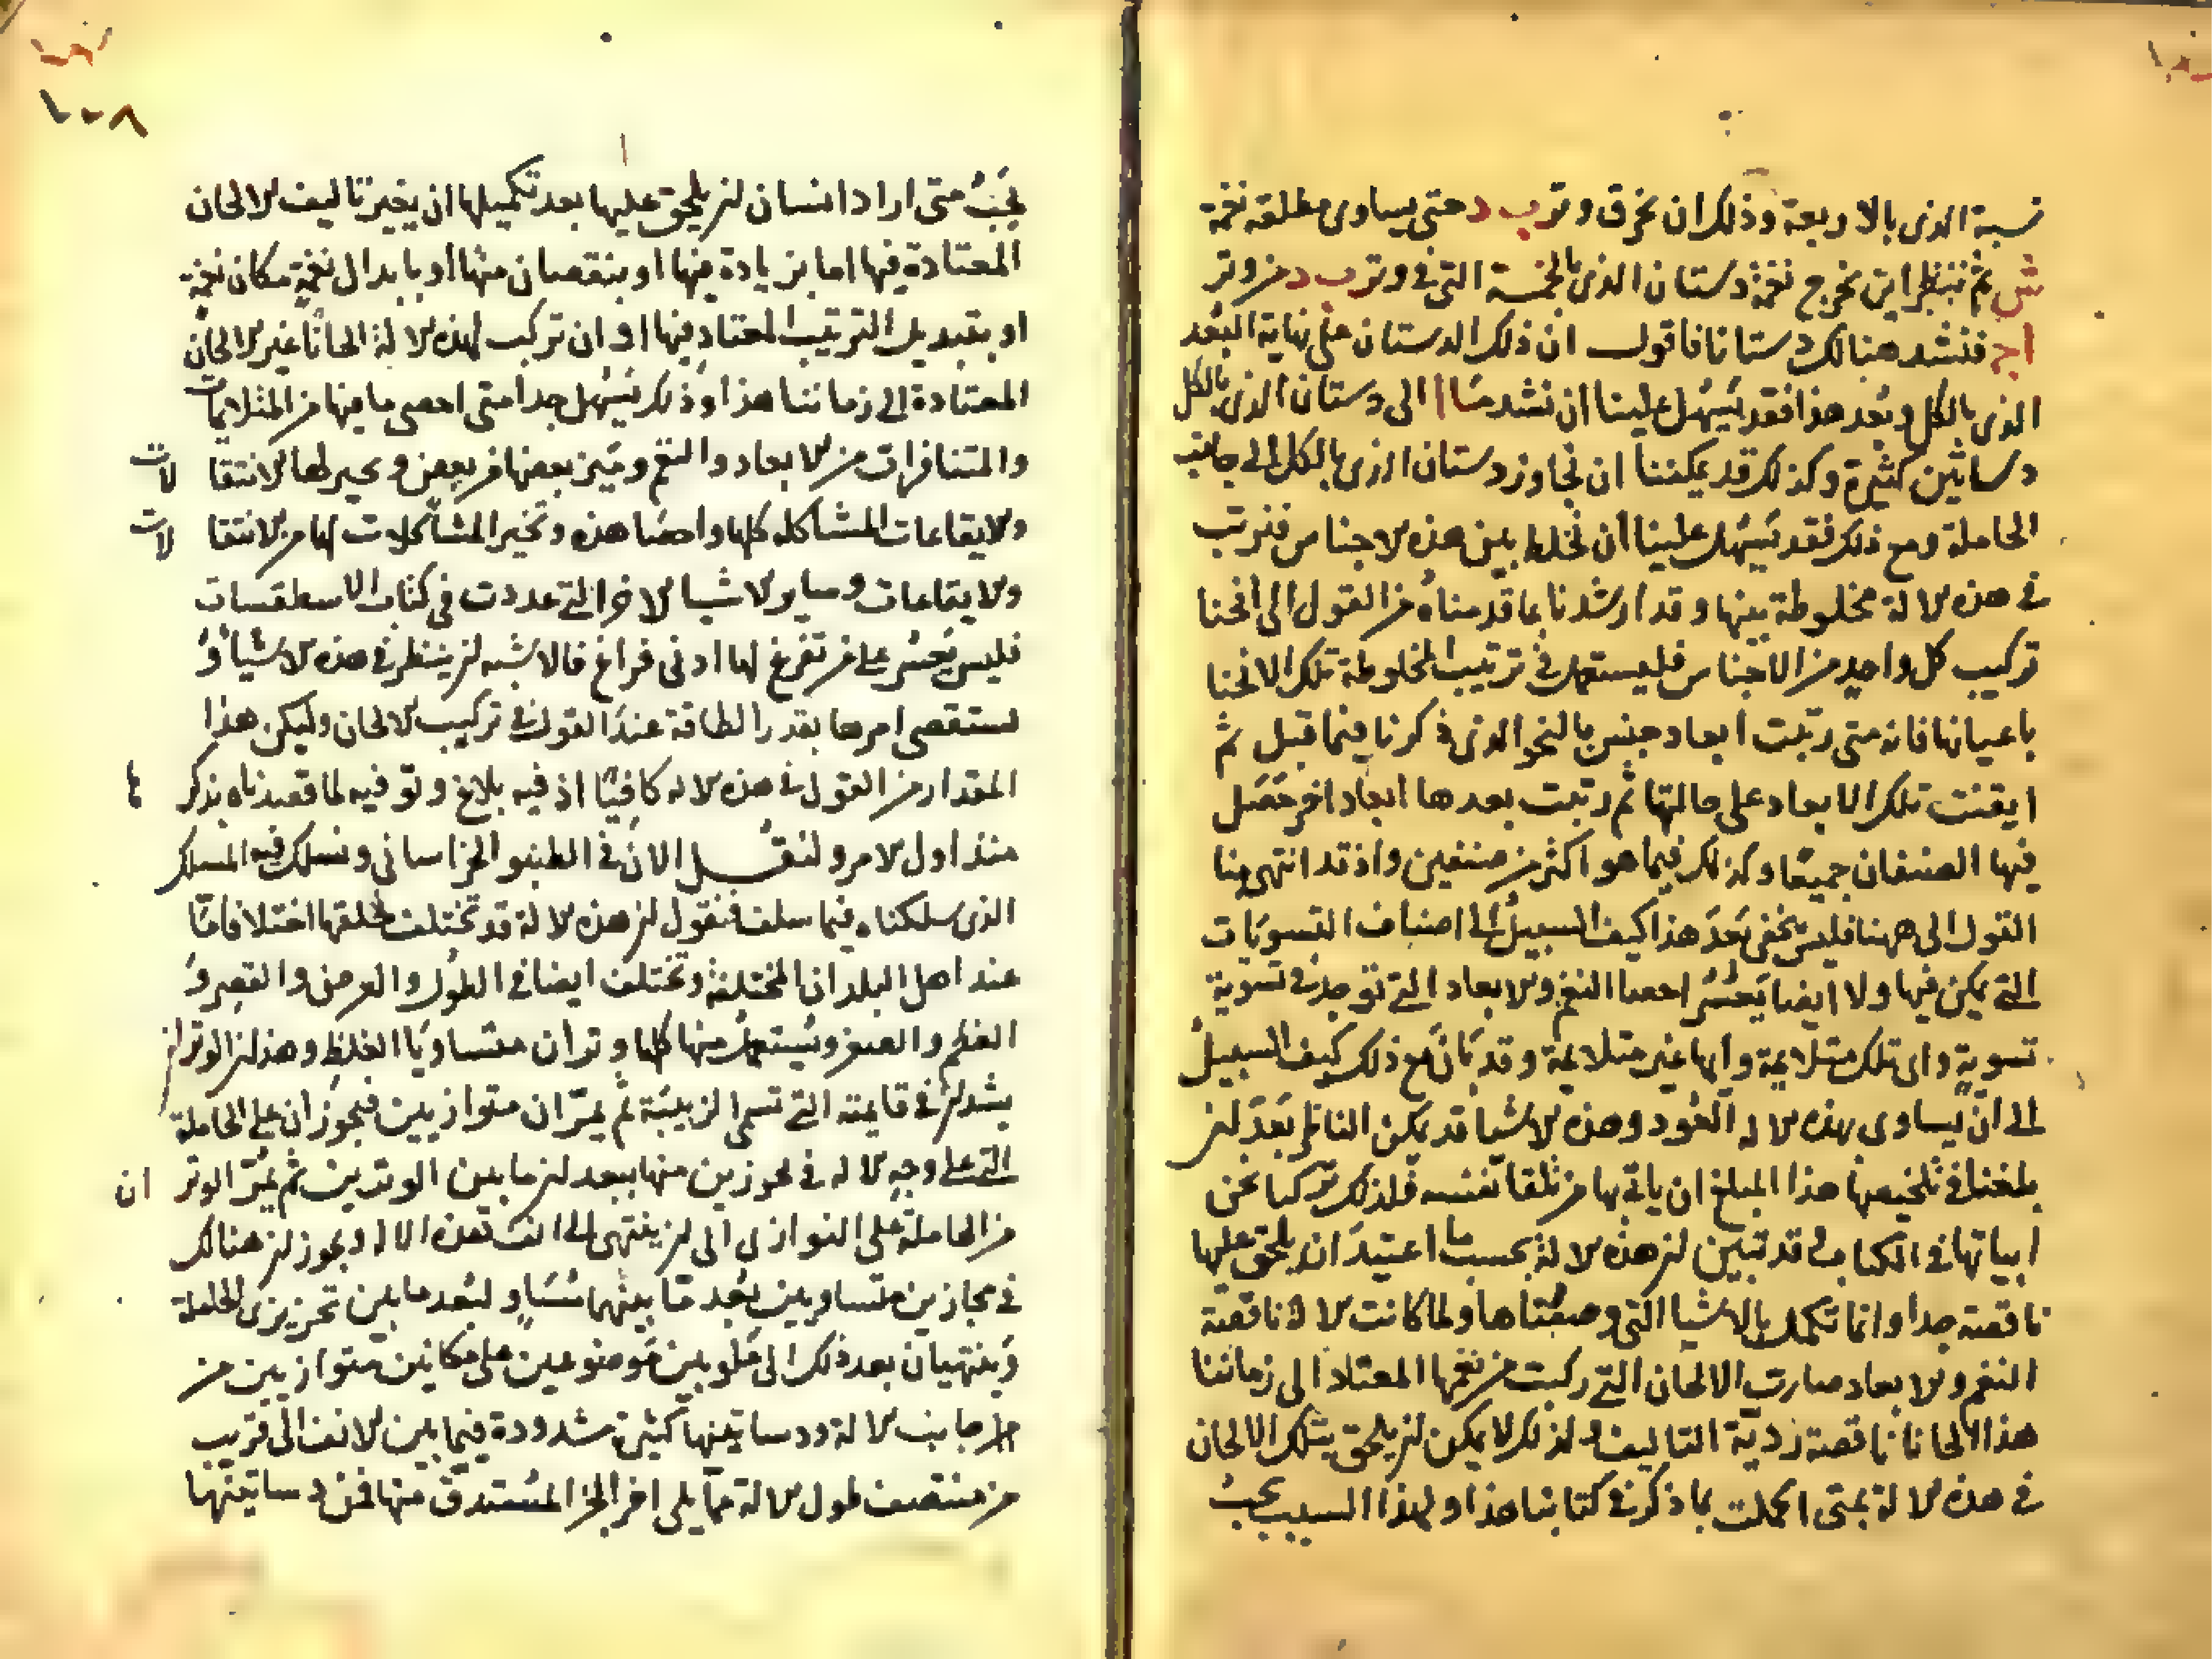 نسبة الذى بالاربعة وذلك ان نحزق وتر ب د حتى يساوى مطلقه نغمة
ش ثم ننظر اين تخرج نغمة دستان الذى بالخمسة التى فى وتر ب د من وتر
ا ج فنشد هنالك دستانا فاقول ان ذلك الدستان على نهاية البعد
الذى بالكل وبعد هذا فقد يسهل علينا ان نشد الى دستان الذى بالكل
دساتين كثيرة وكذلك قد يمكننا ان نجاوز دستان الذى بالكل الى جانب
الحاملة ومع ذلك فقد يسهل علينا ان نخلط بين هذه الاجناس فنرتب
فى هذه الالة مخلوطة بينها وقد ارشدنا بما قدمناه من القول الى انحنا
تركيب كل واحد من الاجناس فليستعمل فى ترتيب المخلوطة تلك الانحنا
باعيانها فانه متى رتبت ابعاد جنس بالنحو الذى ذكرنا فيما قبل ثم
ايقنت تلك الابعاد على حالتها ثم رتبت بعدها ابعاد اخر حصل
فيها الصنفان جميعا وكذلك فيما هو اكثر من صنفين واذ قد انتهى بنا
القول الى ههنا فليس يخفى بعد هذا كيف السبيل الى اصناف التسويات
التى يمكن فيها ولا ايضا يعسر احصا النغم والابعاد التى توجد فى تسوية
تسوية واى تلك متلايمة وايها غير متلايمة وقد بان مع ذلك كيف السبيل
الى ان يساوى بهذه الاله العود وهذه الاشيا قد يمكن الناظر بعد ان
بلغنا فى تلخيصها هذا المبلغ ان ياتى بها من تلقا نفسه فلذلك تركنا نحن
اثباتها فى الكتاب قد تبين ان هذه الالة بحسب ما اعتيد ان يلحق عليها
ناقصة جدا وانما تكمل بالاشيا التى وصفناها ولما كانت الالة ناقصة
النغم والابعاد صارت الالحان التى ركبت من نغمها المعتاد الى زماننا
هذا الحانا ناقصة ردية التاليف ولذلك لا يمكن ان يلحق بتلك الالحان
فى هذه الالة متى اكملت بما ذكر فى كتابنا هذا ولهذا السبب يجب
١٠٨
يجب متى اراد انسان ان يلحق عليها بعد تكميلها ان يغير تاليف الالحان
المعتادة فيها اما بزيادة فيها او بنقصان منها او بابدال نغمة مكان نغمة
او بتبديل الترتيب المعتاد فيها او ان تركب لهذه الالة الحانا غير الالحان
المعتادة الى زماننا هذا وذلك يسهل جدا متى احصى ما فيها من المتلايمات
والمتنافرات من الابعاد والنغم وميز بعضها من بعض الانتقالات
والايقاعات المشاكله كلها واحصا هذه وتخير المشاكلات لها من الانتقالات
والايقاعات وساير الاشيا الاخر التى عددت فى كتاب الاسطقسات
فليس يعسر على من تفرغ لها ادنى فراغ فالاشبه ان ينظر فى هذه الاشيا و
نستقصى امرها بقدر الطاقة عند القول فى تركيب الالحان وليكن هذا
المقدار من القول فى هذه الاله كافيا اذ فيه بلاغ وتوفيه لما قصدناه بذكرها
منذ اول الامر ولنقل الان فى الطنبور الخراسانى ونسلك فيه المسلك
الذى سلكناه فيما سلف فنقول ان هذه الالة قد تختلف خلقتها اختلافا ما
عند اهل البلدان المختلفة وتختلف ايضا فى الطول والعرض والقصر و
العظم والصغر ويستعمل فيها كلها وتران متساويا الغلظ وهذان الوتران
يشدان فى قايمته التى تسمى الزبيبة ثم يمران متوازيين فيجوزان على الحاملة
التى على وجه الاله فى تحزيزين منها يبعدان ما بين الوترين ثم يمر الوتران
من الحاملة على التوازى الى ان ينتهى الى انف هذه الاله ويجوزان هنالك
فى مجازين متساويين بعد ما بينهما مساو لبعد ما بين تحزيزى الحاملة
وينتهيان بعد ذلك الى ملويين موضوعين على مكانين متوازيين من
جانب الالة ودساتينها كثيرة مشدودة فيما بين الانف الى قريب
من منتصف طول الالة مما يلى اخر الجز المستدق منها فمن دساتينها